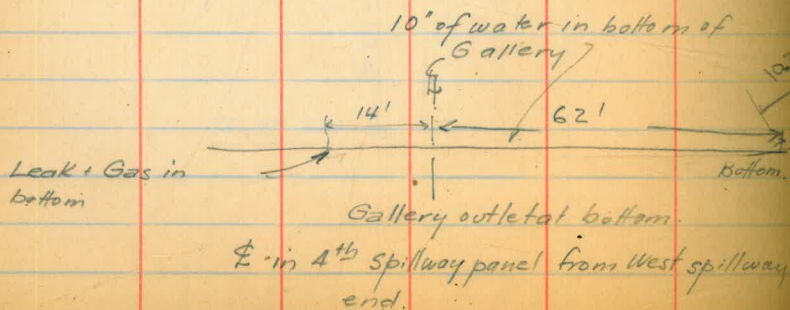 10" of water in bottom of
Gallery
℄
10'
14'
62'
Leak + Gas in
bottom
Bottom.
Gallery outlet at bottom.
℄ in 4th Spillway panel from West spillway
end.